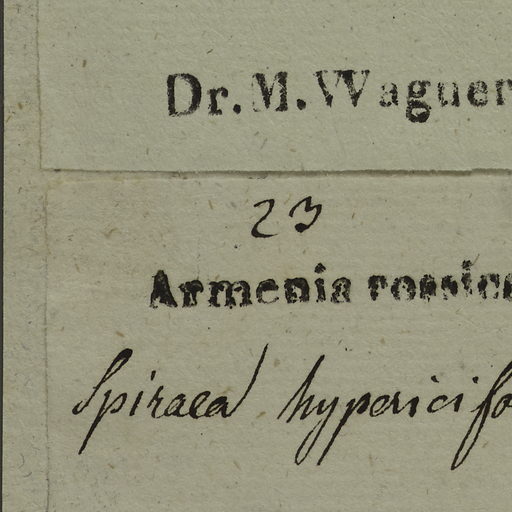 Dr. M. Wagner
23
Armenia rossica
Spiraea hypericifo